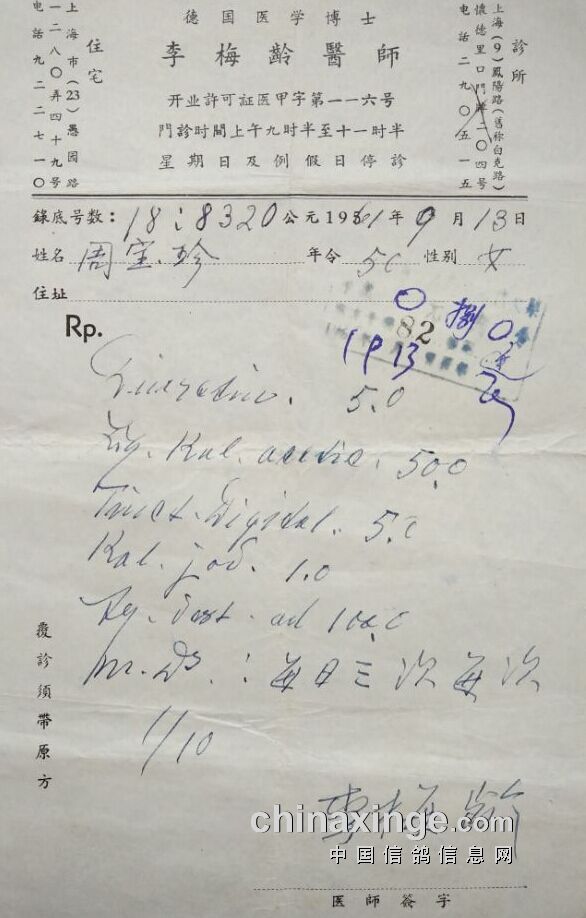 德国医学博士
李梅齡醫師
开业許可証医甲字第一一六号
門診时間上午九时半至十一时半
星期日及例假日停診
診所
上海(9)鳳陽路(舊称白克路)
懷德里口門牌二〇四号
电話二九〇五一五
住宅
上海市(23)愚园路
一二八〇弄四十九号
电話九二二七一〇
錄底号数:18:8320 公元1961年9月13日
姓名 周宝珍 年令 50 性别 女
住址
Rp.
82
0 捌 0
1913
Diuretin. 5.0
Lig. Kal. acetic. 50.0
Tinct. Digital. 5.0
Kal. jod. 1.0
Ag. dest. ad 100.0
M. DS.: 每日三次每次
1/10
覆診須帶原方
李梅齡
chinaxinge.com
中国信鸽信息网
医師簽字